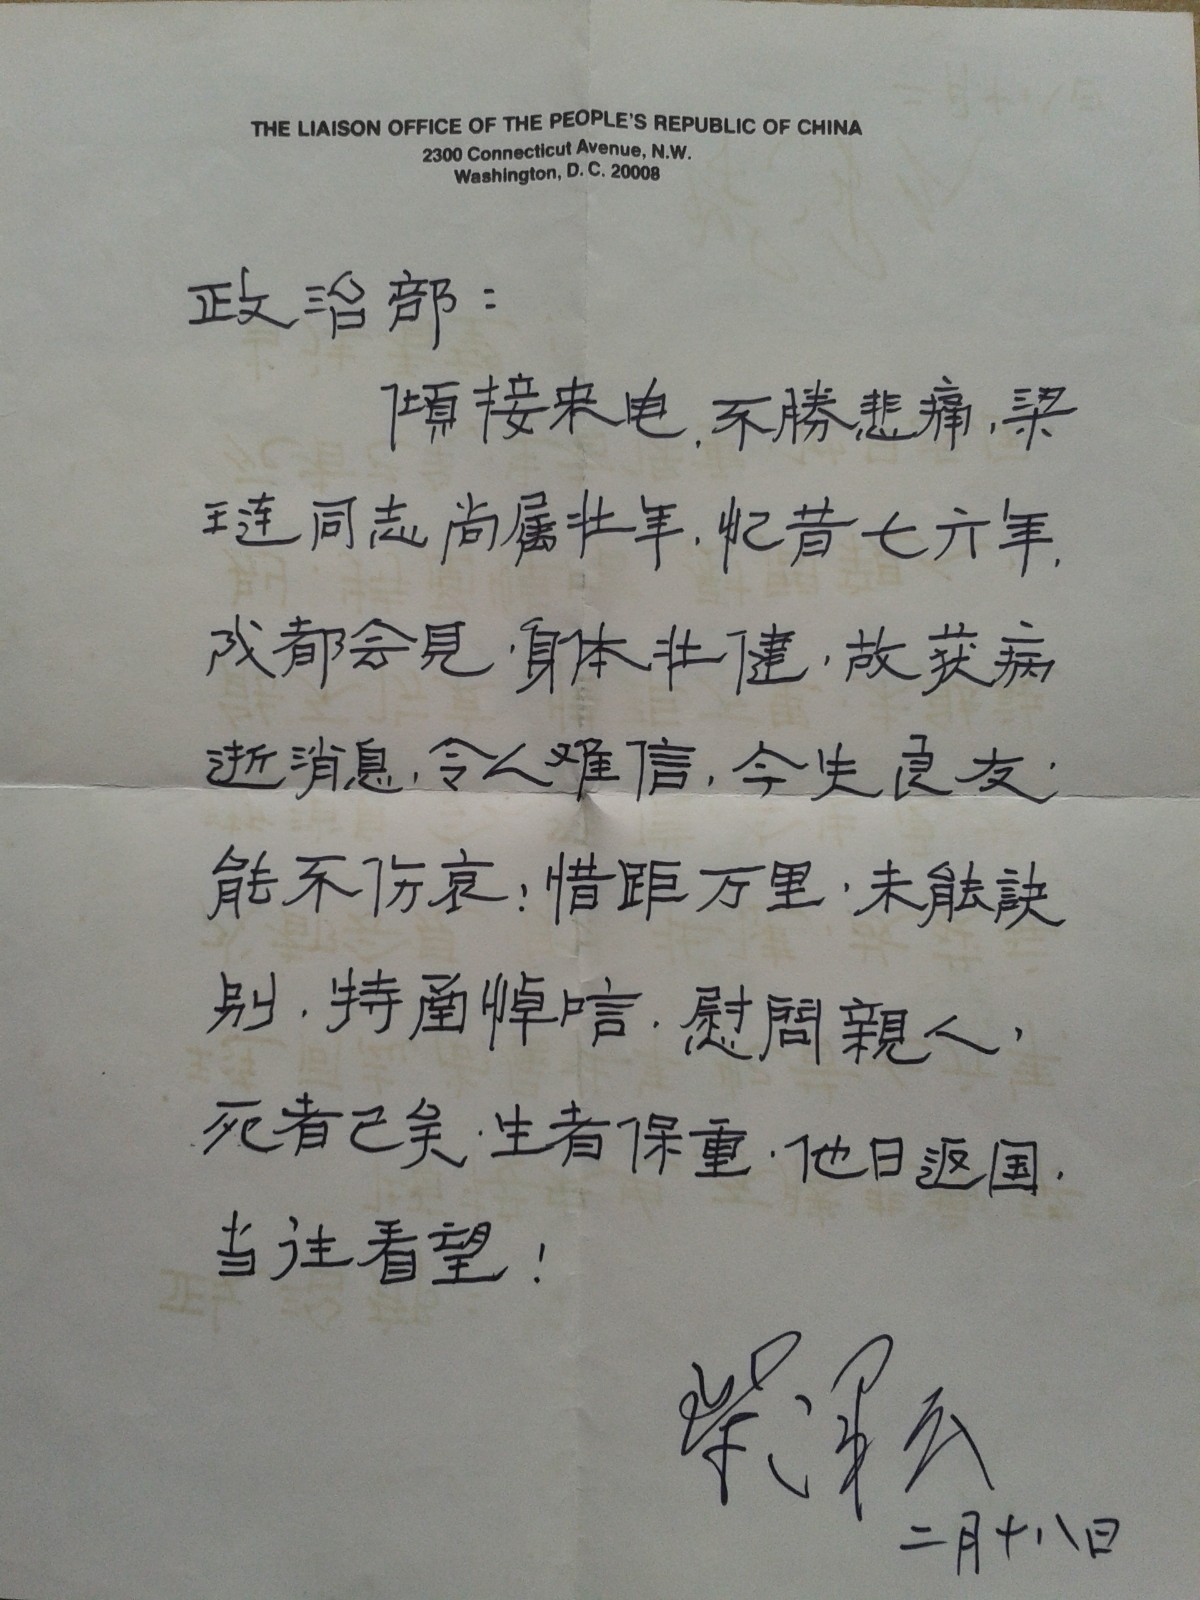 THE LIAISON OFFICE OF THE PEOPLE'S REPUBLIC OF CHINA
2300 Connecticut Avenue, N.W.
Washington, D. C. 20008
政治部：
傾接来电，不勝悲痛，梁
琏同志尚属壮年，忆昔七六年，
成都会見，身体壮健，故获病
逝消息，令人难信，今失良友，
能不伤哀！惜距万里，未能訣
别，特函悼唁，慰問親人，
死者已矣，生者保重，他日返国，
当往看望！
柴泽民
二月十八日